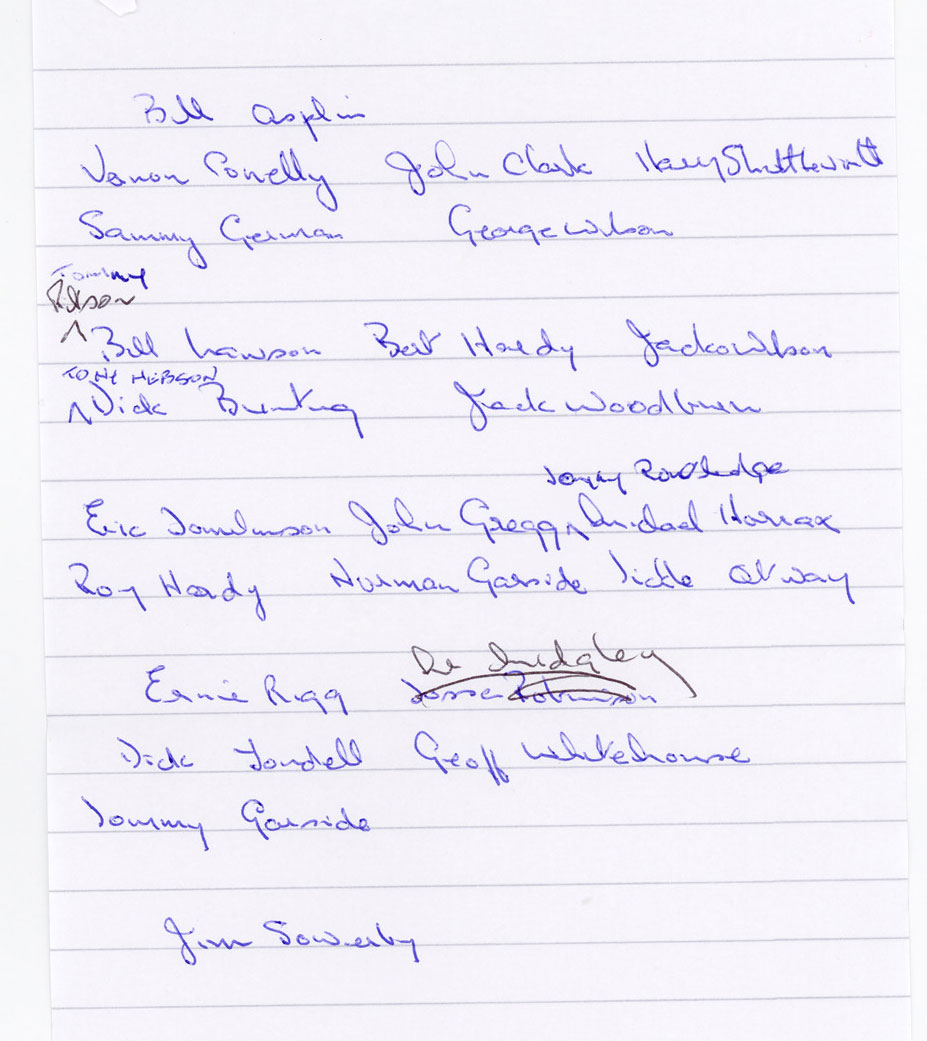 Bill Asplin
Vernon Conelly John Clark Harry Shuttleworth
Sammy German George Wilson
Tommy
Ritson
Bill Lawson Bert Hardy Jacko Wilson
TONY HEBSON
Dick Bunting Jack Woodburn
Tommy Routledge
Eric Tomlinson John Gregg Michael Horrax
Roy Hardy Norman Garside Dickle Otway
Midgley
Ernie Rigg Robinson
Dick Tondell Geoff Whitehouse
Tommy Garside
Jim Sowerby